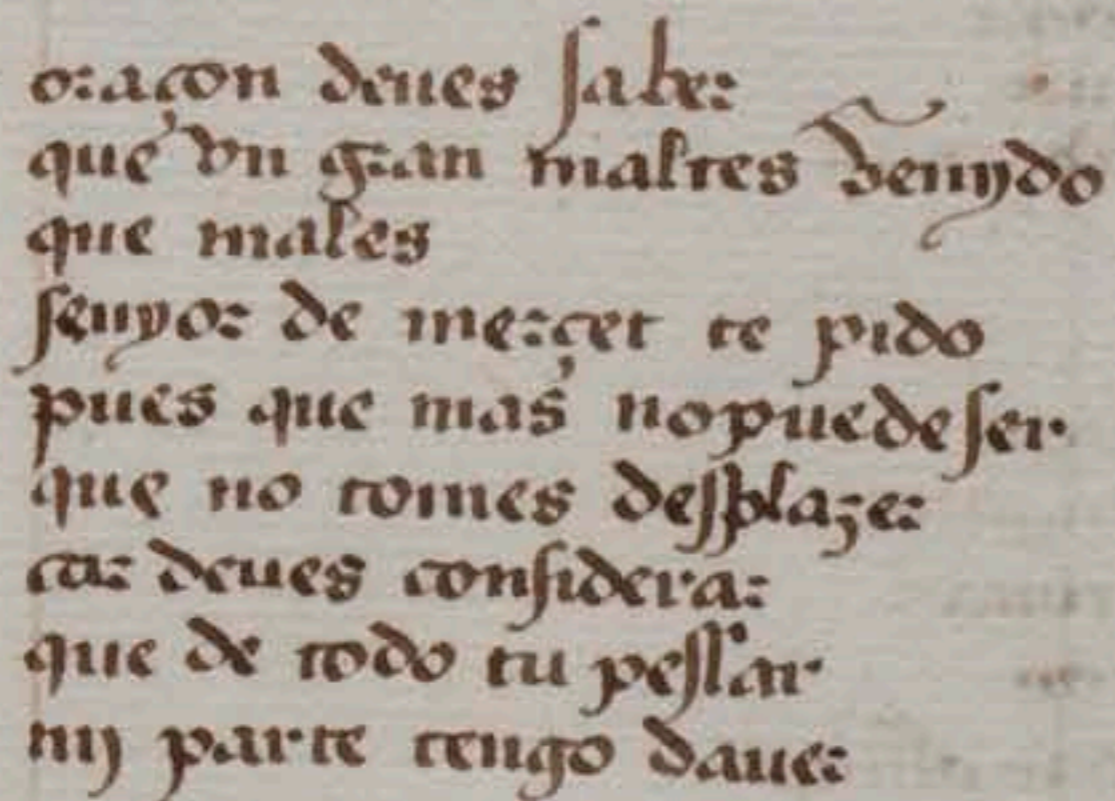 oraçon deues saber
que vn gran maltes venydo
que males
senyor de merçet te pido
pues que mas nopuedeser
que no tomes desplazer
car deues considerar
que de todo tu pessar
mj parte tengo dauer